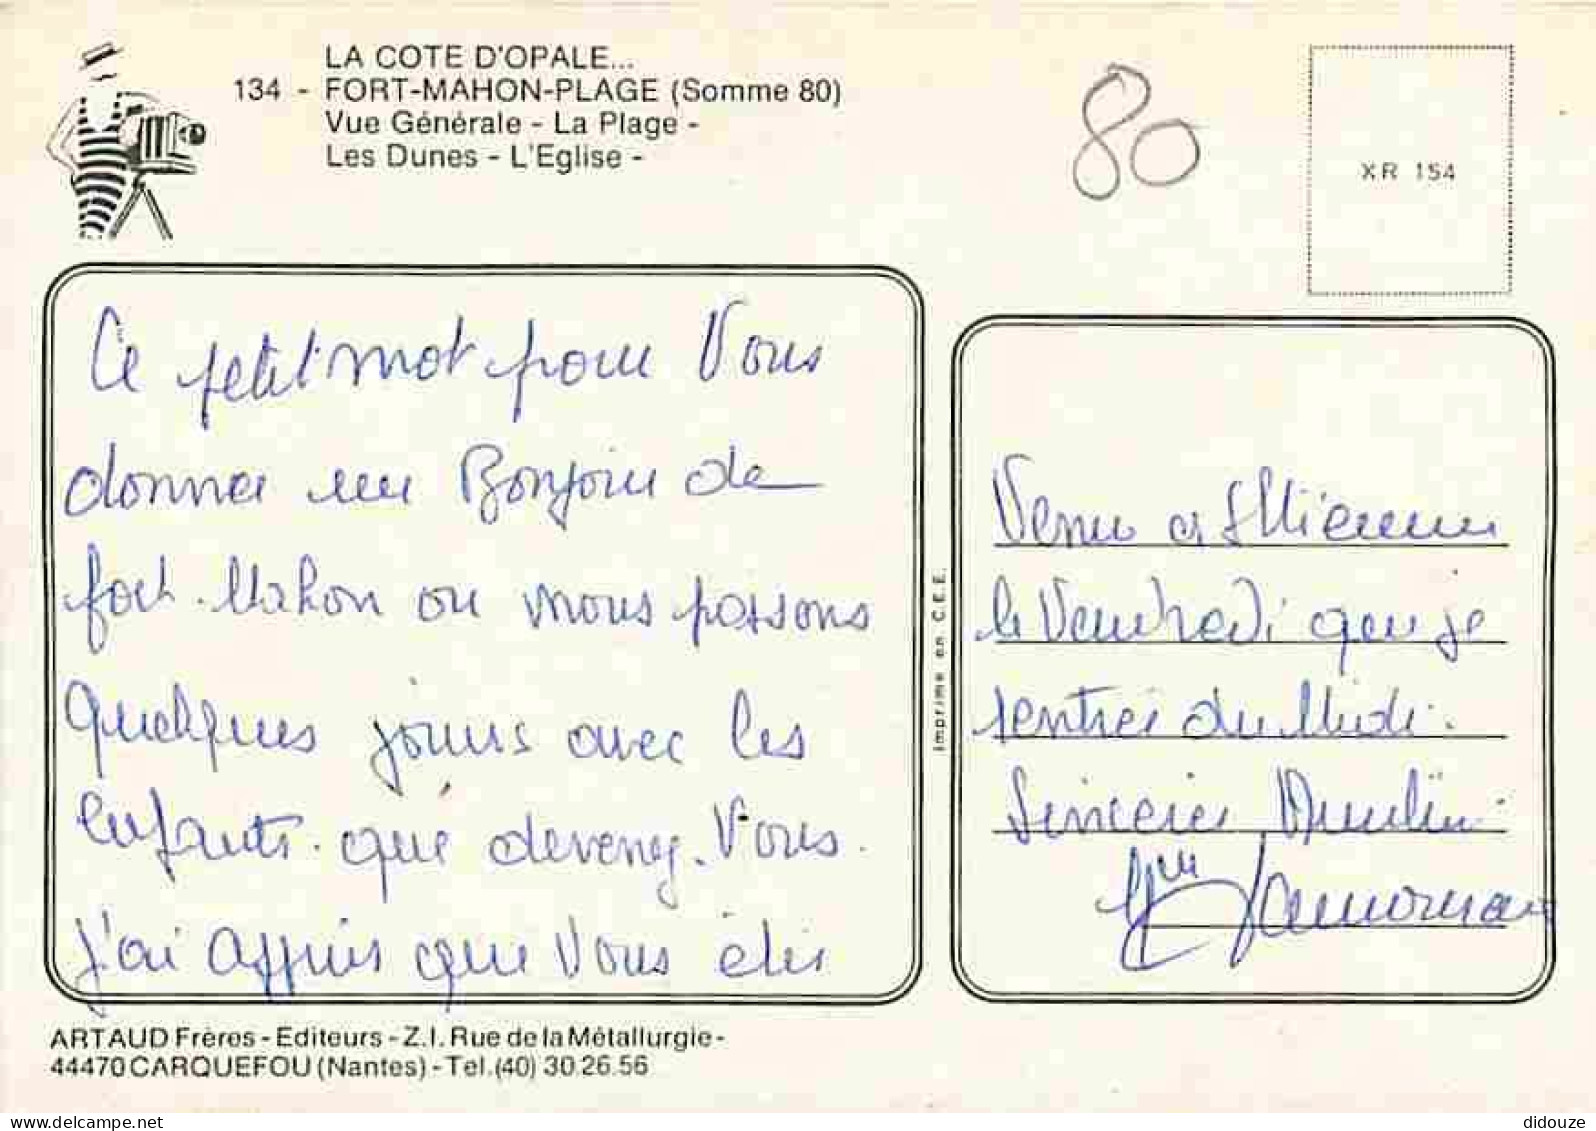 LA COTE D'OPALE...
134 - FORT-MAHON-PLAGE (Somme 80)
Vue Générale - La Plage -
Les Dunes - L'Eglise -
80
XR 154
Ce petit mot pour Vous
donner un Bonjour de
fort. Mahon ou nous passons
quelques jours avec les
enfants. que devenez. Vous.
J'ai appris que Vous étis
Imprimé en C.E.E.
Venu a
le Vendredi que je
rentrer du Midi.
Sincères
Mme
ARTAUD Frères - Editeurs - Z.I. Rue de la Métallurgie -
44470 CARQUEFOU (Nantes) - Tel. (40) 30.26.56
didouze
www.delcampe.net